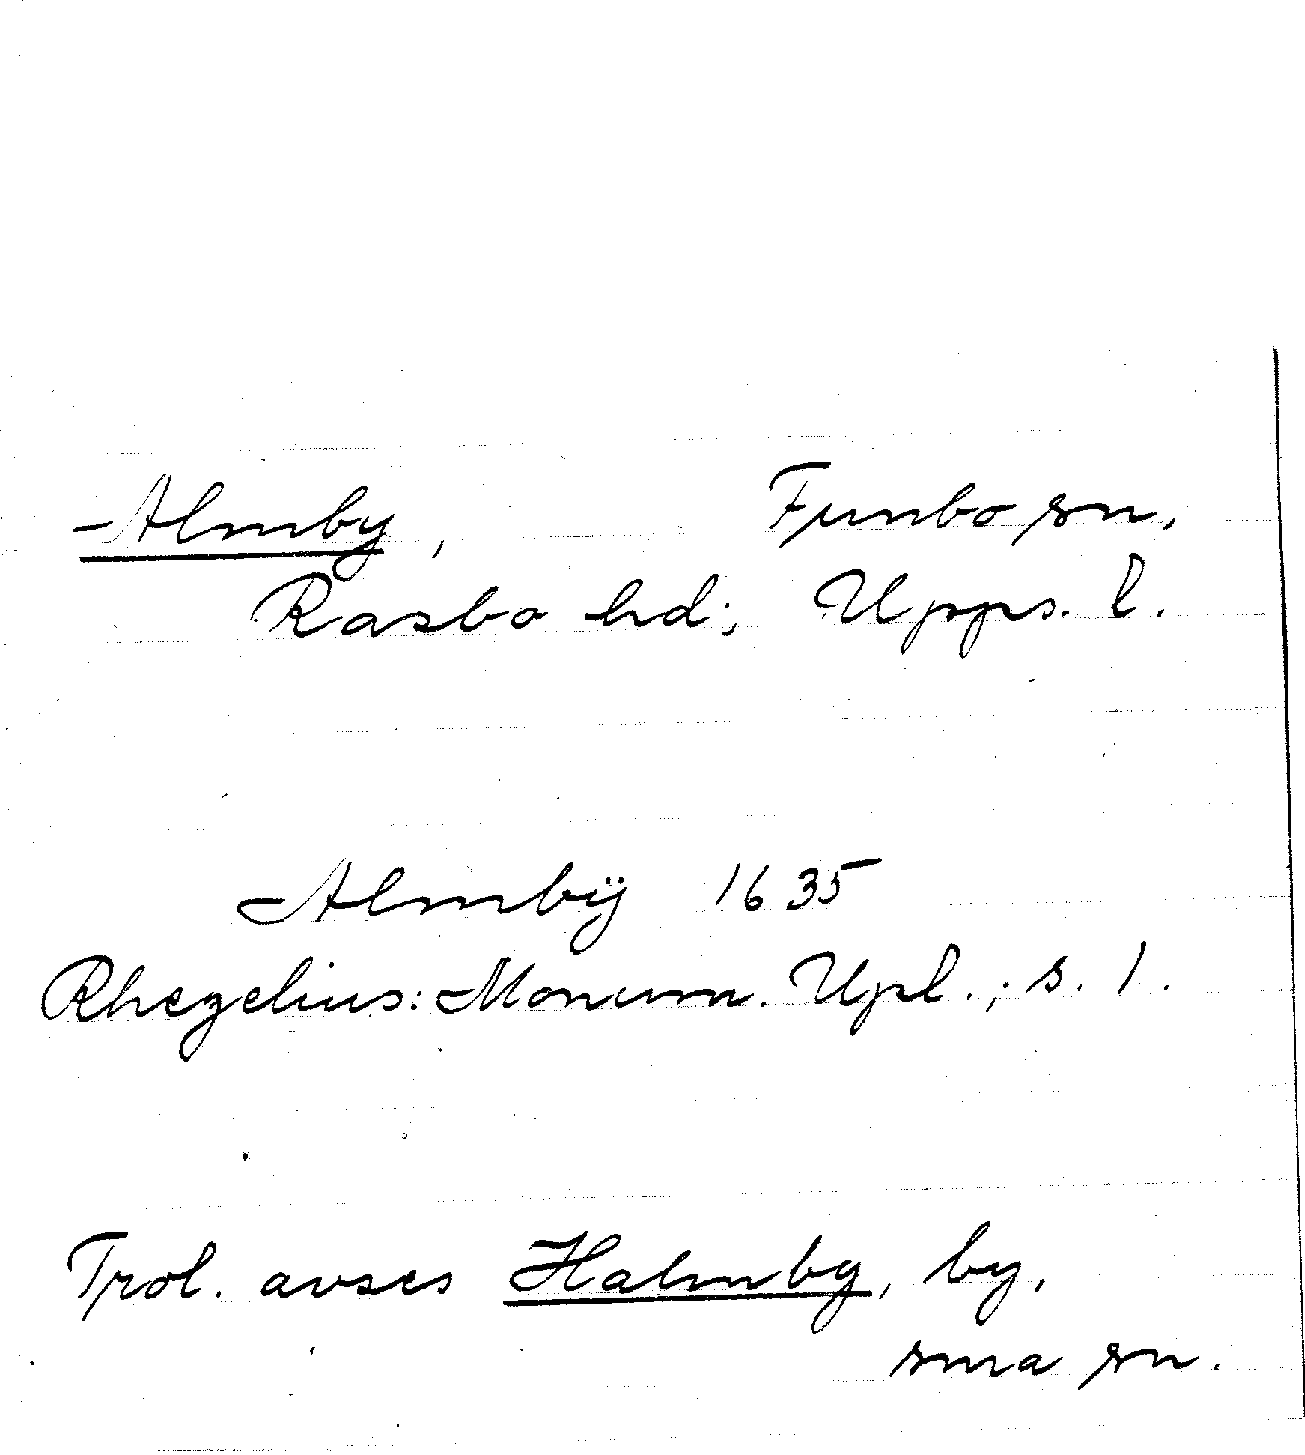 Almby, Funbo sn,
Rasbo hd; Upps. l.
Almbÿ 1635
Rhezelius: Monum. Upl.; s. 1.
Trol. avses Halmby, by,
sma sn.